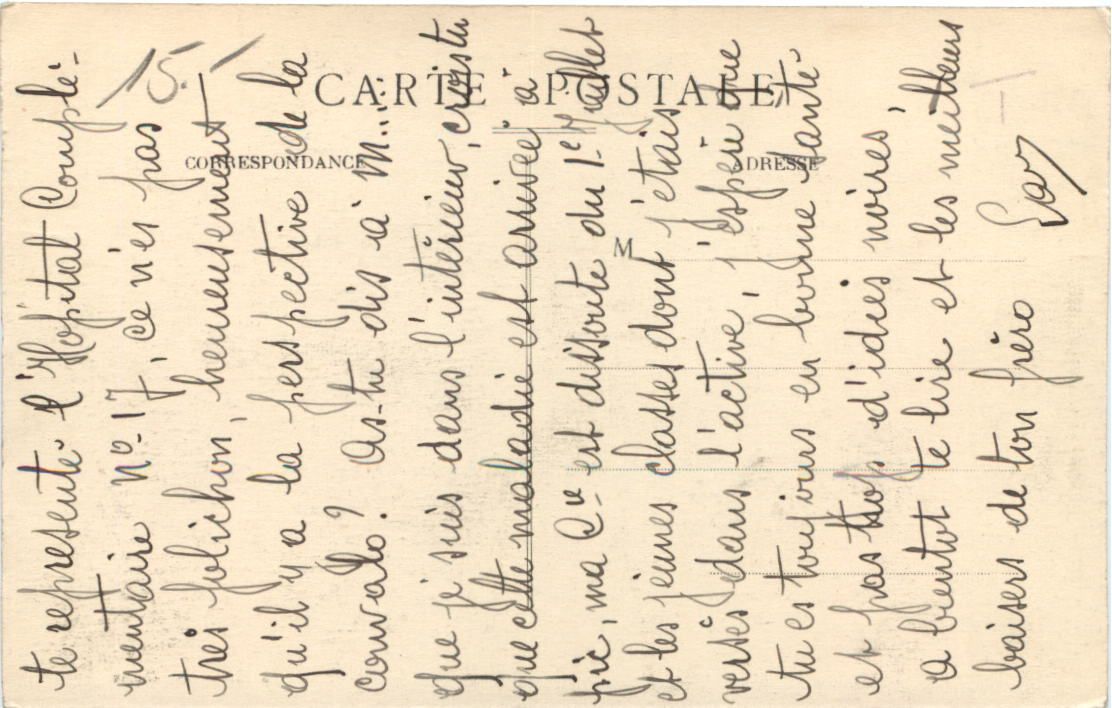 CARTE POSTALE
CORRESPONDANCE
ADRESSE
M
15.
te représente l'Hopital Complé-
mentaire nº 17, ce n'es pas
très folichon, heureusement
qu'il y a la perspective de la
convalo? As-tu dis à M...
que je suis dans l'intérieur, crois tu
que cette maladie est arrivée à
pic, ma Cie est dissoute du 1er Juillet
et les jeunes classes dont j'étais
versés dans l'active, j'espère que
tu es toujours en bonne santé
et pas trop d'idées noires,
a bientot te lire et les meilleurs
baisers de ton frèro